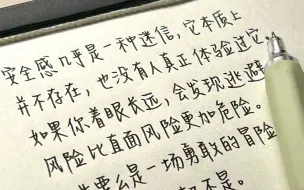 安全感几乎是一种迷信,它本质上
并不存在,也没有人真正体验过它。
如果你着眼长远,会发现逃避
风险比直面风险更加危险。
要么是一场勇敢的冒险
不是。